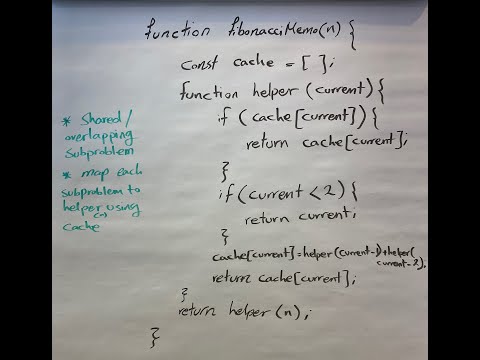 function fibonacciMemo(n) {
const cache = [ ];
function helper (current) {
if (cache[current]) {
return cache[current];
}
if (current < 2) {
return current;
}
cache[current] = helper (current-1) + helper (
current-2);
return cache[current];
}
return helper (n);
}
* Shared/
overlapping
subproblem
* map each
subproblem to
helper using
(n)
cache